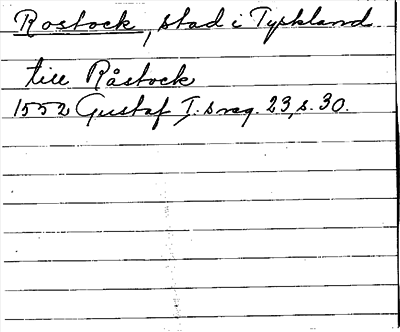 Rostock, stad i Tyskland
till Råstock
1552 Gustaf I:s reg. 23, s. 30.